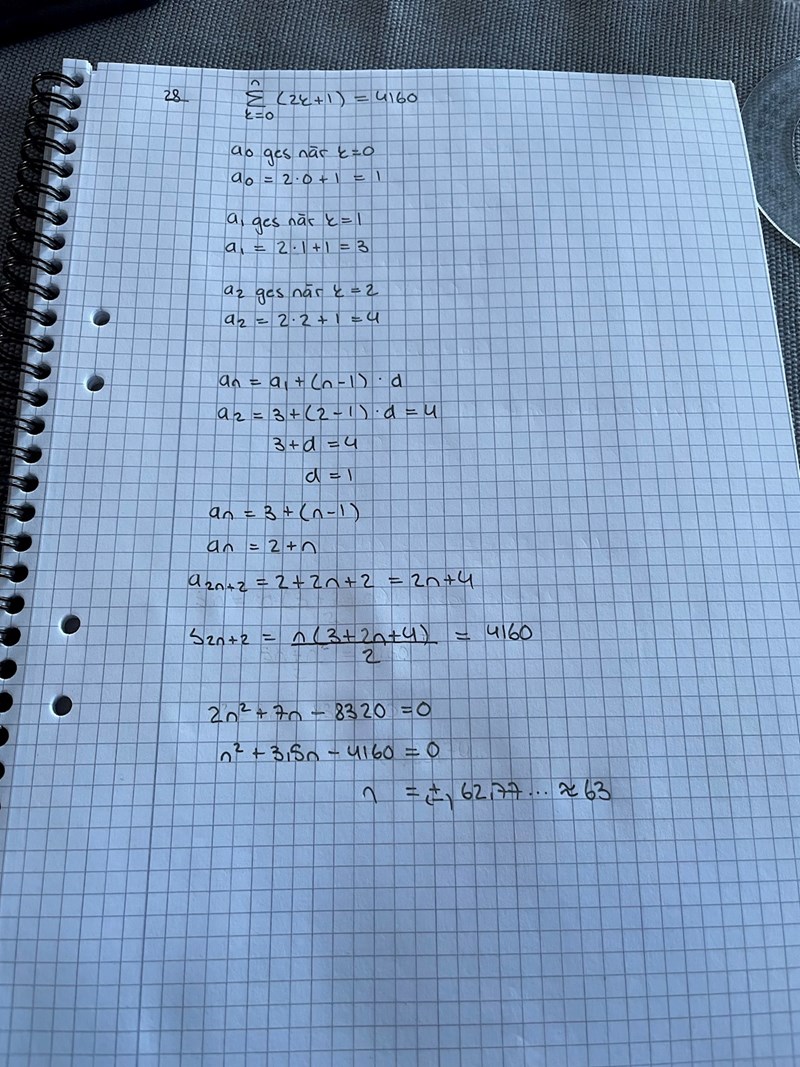 28 n
Σ (2k+1) = 4160
k=0
a0 ges när k=0
a0 = 2·0+1 = 1
a1 ges när k=1
a1 = 2·1+1 = 3
a2 ges när k=2
a2 = 2·2+1 = 4
an = a1 + (n-1) · d
a2 = 3+(2-1) · d = 4
3+d = 4
d = 1
an = 3 + (n-1)
an = 2+n
a2n+2 = 2+2n+2 = 2n+4
S2n+2 = n(3+2n+4)/2 = 4160
2n² + 7n - 8320 = 0
n² + 3,5n - 4160 = 0
n = (±) 62,77... ≈ 63